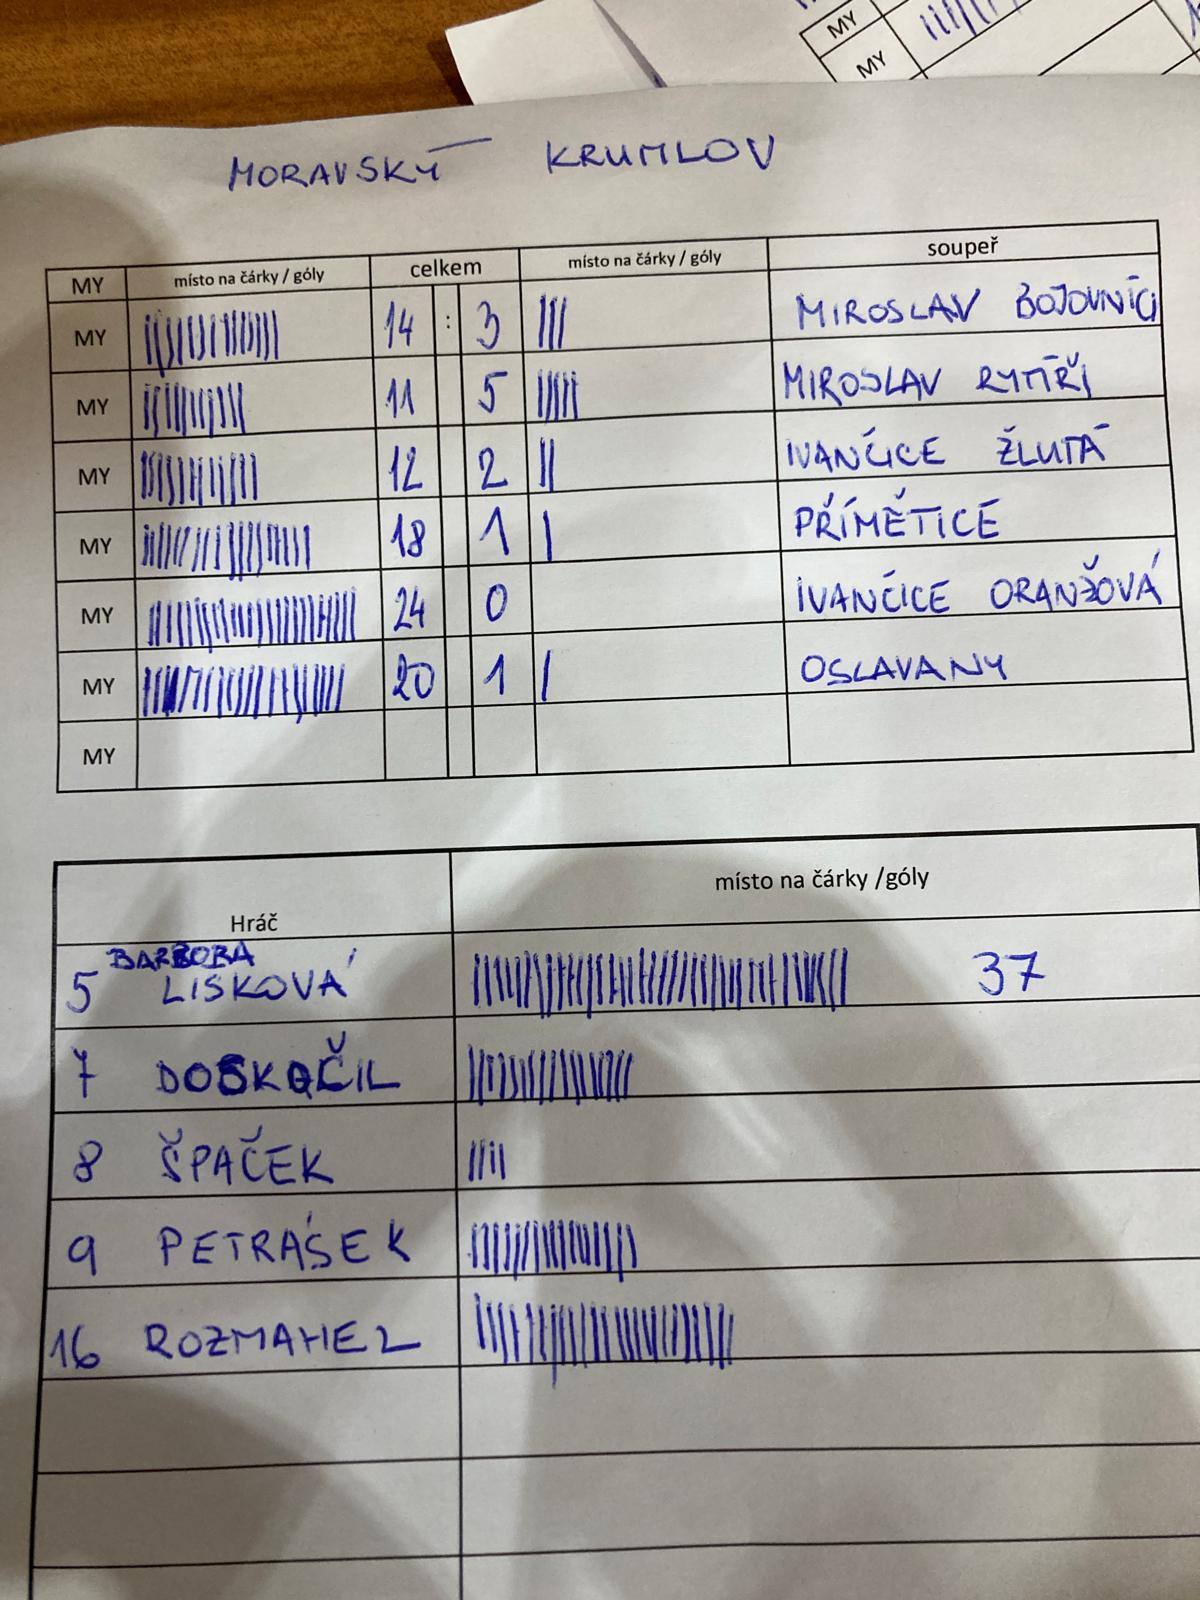 MY
MY
MORAVSKÝ KRUMLOV
MY místo na čárky / góly celkem místo na čárky / góly soupeř
MY 14 : 3 MIROSLAV BOJOVNÍCI
MY 11 5 MIROSLAV RYTÍŘI
MY 12 2 IVANČICE ŽLUTÁ
MY 18 1 PŘÍMĚTICE
MY 24 0 IVANČICE ORANŽOVÁ
MY 20 1 OSLAVANY
MY
Hráč místo na čárky /góly
5 BARBORA LISKOVÁ 37
7 DOSKOČIL
8 ŠPAČEK
9 PETRÁSEK
16 ROZMAHEL